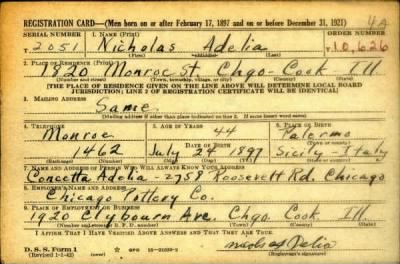 REGISTRATION CARD—(Men born on or after February 17, 1897 and on or before December 31, 1921) 4A
SERIAL NUMBER 1. NAME (Print) ORDER NUMBER
T 2051 Nicholas Adelia T10,626
(First) (Middle) (Last)
2. PLACE OF RESIDENCE (Print)
1920 Monroe St. Chgo- Cook Ill
(Number and street) (Town, township, village, or city) (County) (State)
[THE PLACE OF RESIDENCE GIVEN ON THE LINE ABOVE WILL DETERMINE LOCAL BOARD
JURISDICTION; LINE 2 OF REGISTRATION CERTIFICATE WILL BE IDENTICAL]
3. MAILING ADDRESS
Same
[Mailing address if other than place indicated on line 2. If same insert word same]
4. TELEPHONE 5. AGE IN YEARS 6. PLACE OF BIRTH
Monroe 44 Palermo
DATE OF BIRTH (Town or county)
1462 July 24 1897 Sicily - Italy
(Exchange) (Number) (Mo.) (Day) (Yr.) (State or country)
7. NAME AND ADDRESS OF PERSON WHO WILL ALWAYS KNOW YOUR ADDRESS
Concetta Adelia - 2758 Roosevelt Rd. Chicago
8. EMPLOYER'S NAME AND ADDRESS
Chicago Pottery Co.
9. PLACE OF EMPLOYMENT OR BUSINESS
1920 Clybourn Ave. Chgo. Cook Ill.
(Number and street or R. F. D. number) (Town) (County) (State)
I AFFIRM THAT I HAVE VERIFIED ABOVE ANSWERS AND THAT THEY ARE TRUE.
D. S. S. Form 1 GPO
(Revised 1-1-42) (over) (Registrant's signature)